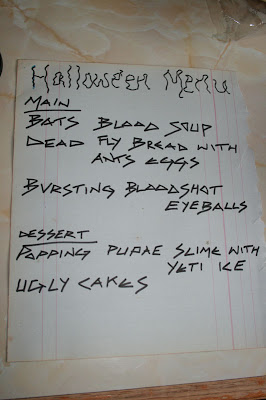 Halloween Menu
MAIN
BATS BLOOD SOUP
DEAD FLY BREAD WITH
ANTS EGGS
BURSTING BLOODSHOT
EYEBALLS
DESSERT
POPPING PUPAE SLIME WITH
YETI ICE
UGLY CAKES